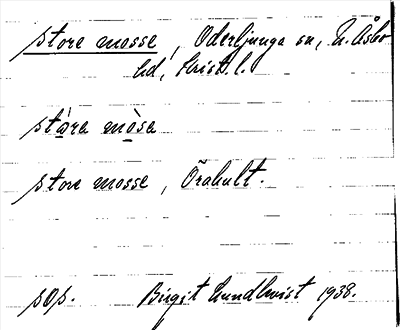 store mosse, Oderljunga sn, N. Åsbo
hd, Krist. l.
stòra mòsa
store mosse, Örahult.
sOs. Birgit Lundkvist 1938.